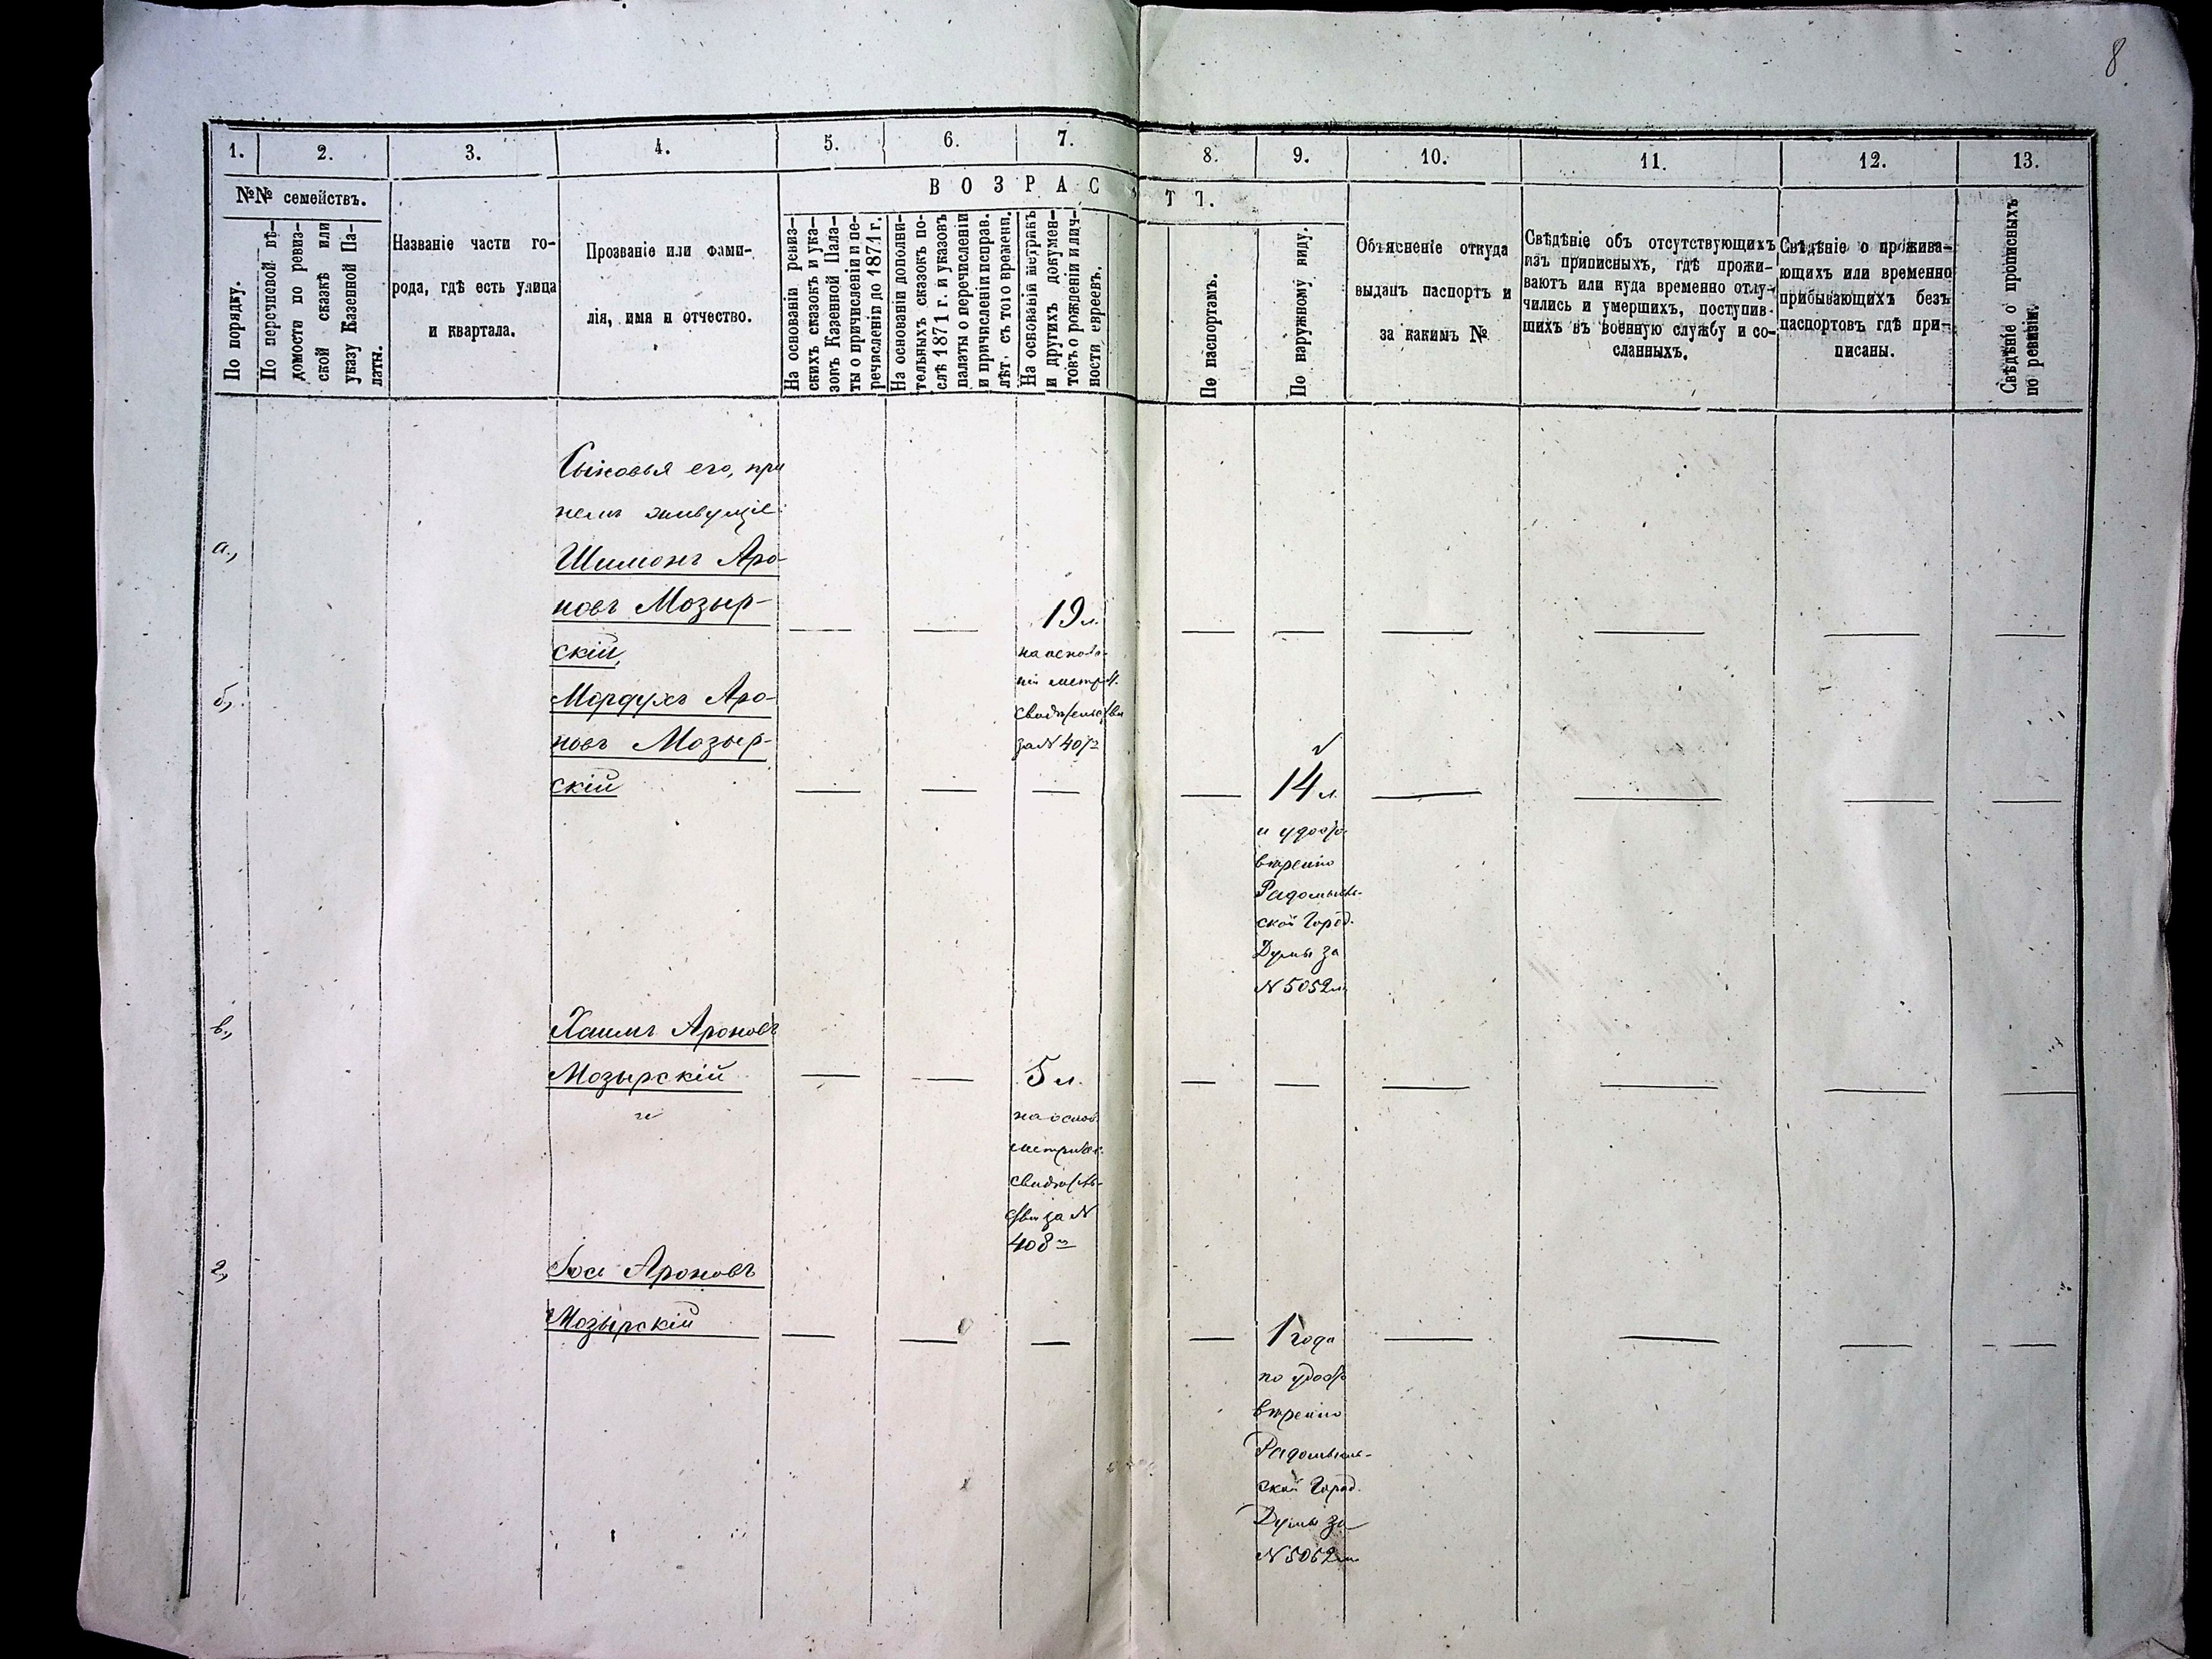 8
1. 2. 3. 4. 5. 6. 7. 8. 9. 10. 11. 12. 13.
№№ семействъ.
ВОЗРАСТЪ.
По порядку.
По перечневой вѣ-
домости по ревиз-
ской сказкѣ или
указу Казенной Па-
латы.
Названіе части го-
рода, гдѣ есть улица
и квартала.
Прозваніе или фами-
лія, имя и отчество.
На основаніи ревиз-
скихъ сказокъ и ука-
зовъ Казенной Пала-
ты о причисленіи и пе-
речисленіи до 1871 г.
На основаніи дополни-
тельныхъ сказокъ по-
слѣ 1871 г. и указовъ
палаты о перечисленіи
и причисленіи исправ.
лѣт. съ того времени.
На основаніи метрикъ
и другихъ докумен-
товъ о рожденіи и лич-
ности евреевъ.
По паспортамъ.
По наружному виду.
Объясненіе откуда
выданъ паспортъ и
за какимъ №
Свѣдѣніе объ отсутствующихъ
изъ приписныхъ, гдѣ прожи-
ваютъ или куда временно отлу-
чились и умершихъ, поступив-
шихъ въ военную службу и со-
сланныхъ.
Свѣдѣніе о прожива-
ющихъ или временно
прибывающихъ безъ
паспортовъ гдѣ при-
писаны.
Свѣдѣніе о прописныхъ
по ревизіи.
Сыновья его, при
немъ живущіе:
а.,
Шимонъ Аро-
новъ Мозыр-
скій,
19 л.
на основа-
ніи метр.
свидѣтельства
за N 407
б,
Мордухъ Аро-
новъ Мозыр-
скій
14 л.
и удосто-
вѣренію
Радомысль-
ской Город.
Думы за
N 5052
в.,
Хаимъ Ароновъ
Мозырскій
и
5 л.
на основ.
метричес.
свидѣтель-
ства за N
408
г,
Іось Ароновъ
Мозырскій
1 года
по удосто
вѣренію
Радомысль-
ской Город.
Думы за
N 5052